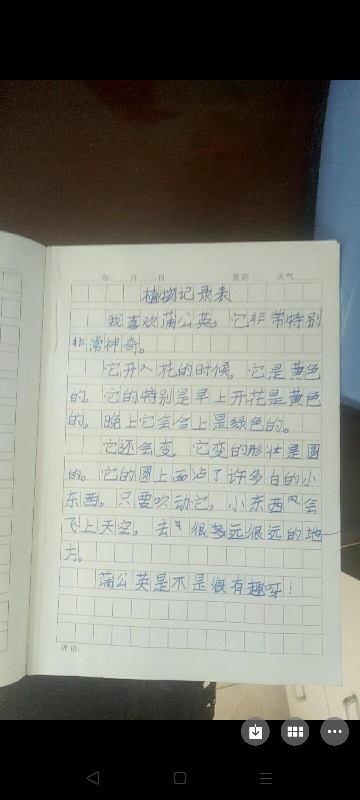 年 月 日 星期 天气
植物记录表
我喜欢蒲公英，它非常特别
非常神奇。
它开入花的时候，它是黄色
的。它的特别是早上开花是黄色
的。晚上它会合上是绿色的。
它还会变，它变的形壮是圆
的。它的圆上面沾了许多白的小
东西。只要吹动它，小东西 会
飞上天空，去 很 远很远的地
方。
蒲公英是不是很有趣呀！
评语：